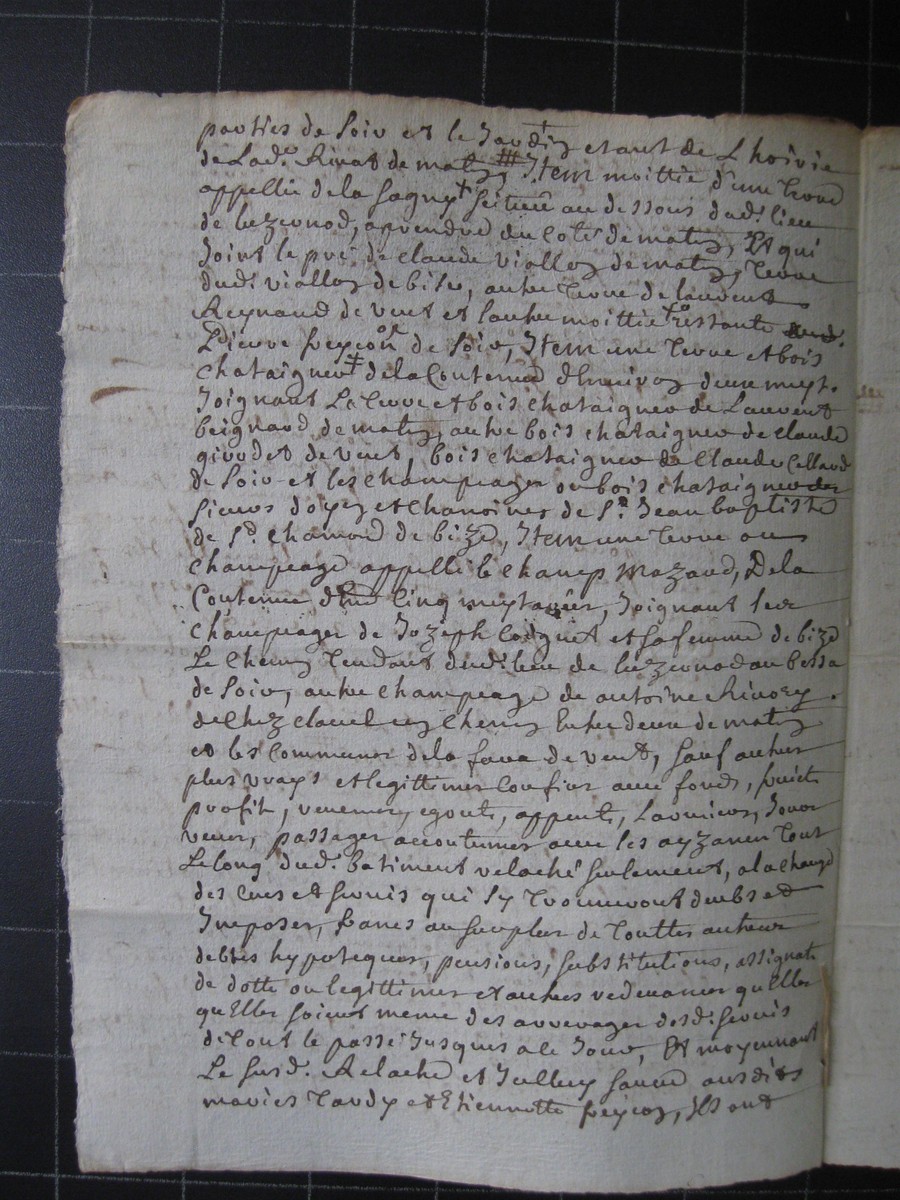 parties de soir et le Jardin etant de L hoirie
de Lad. Rivat de matin, Item moittié d'une Terre
appellée de la Sagny scituée au dessous dud. lieu
de Luzernod, a prendre du Coté de matin, Et qui
Joint le pré de claude viallon de matin, Terre
dud. viallon de bise, autre Terre de laurent
Reynaud de vent et l'autre moittié restante
Pierre peycon de soir, Item une Terre et bois
chataigner de la Contenue d'Environ deux meyt.
Joignant La Terre et bois chataigner de Laurent
Reignaud de matin, autre bois chataigner de claude
girodet de vent, bois chataigner de Claude Collard
de soir et les champeages ou bois chataigner des
sieurs doyen et chanoines de St. Jean baptiste
de St. chamond de bize, Item une Terre ou
champeage appellé le champ mazard, De la
Contenue de Cinq meytayées, Joignant les
champeages de Jozeph Coignet et sa femme de bize
Le chemin Tendant dud. lieu de luzernod au bessa
de soir, autre champeage de antoine Rivory
de chez chemin Entre deux de matin
et les Communes de la fava de vent, sauf autres
plus vrays et legittimes Confins avec fonds, fruits
profit, venemens, egouts, appents, Larmiers, Jours
veues, passages accoutumés avec les ayzances Tout
Le long dud. batiment relaché seulement, a la charge
des Cens et servis qui s'y Trouveront deubs et
Imposés, francs au surplus de Touttes autres
debtes hypoteques, pensions, substitutions, assignats
de dotte ou legittimes et autres redevances qu'Elles
qu'Elles soient meme des arrerages desd. servis
de Tout le passé Jusques a ce Jour, Et moyennant
Le susd. Relaché et Jceluy sauvé ausdits
mariés Tardy et Etiennette peycon, ils ont